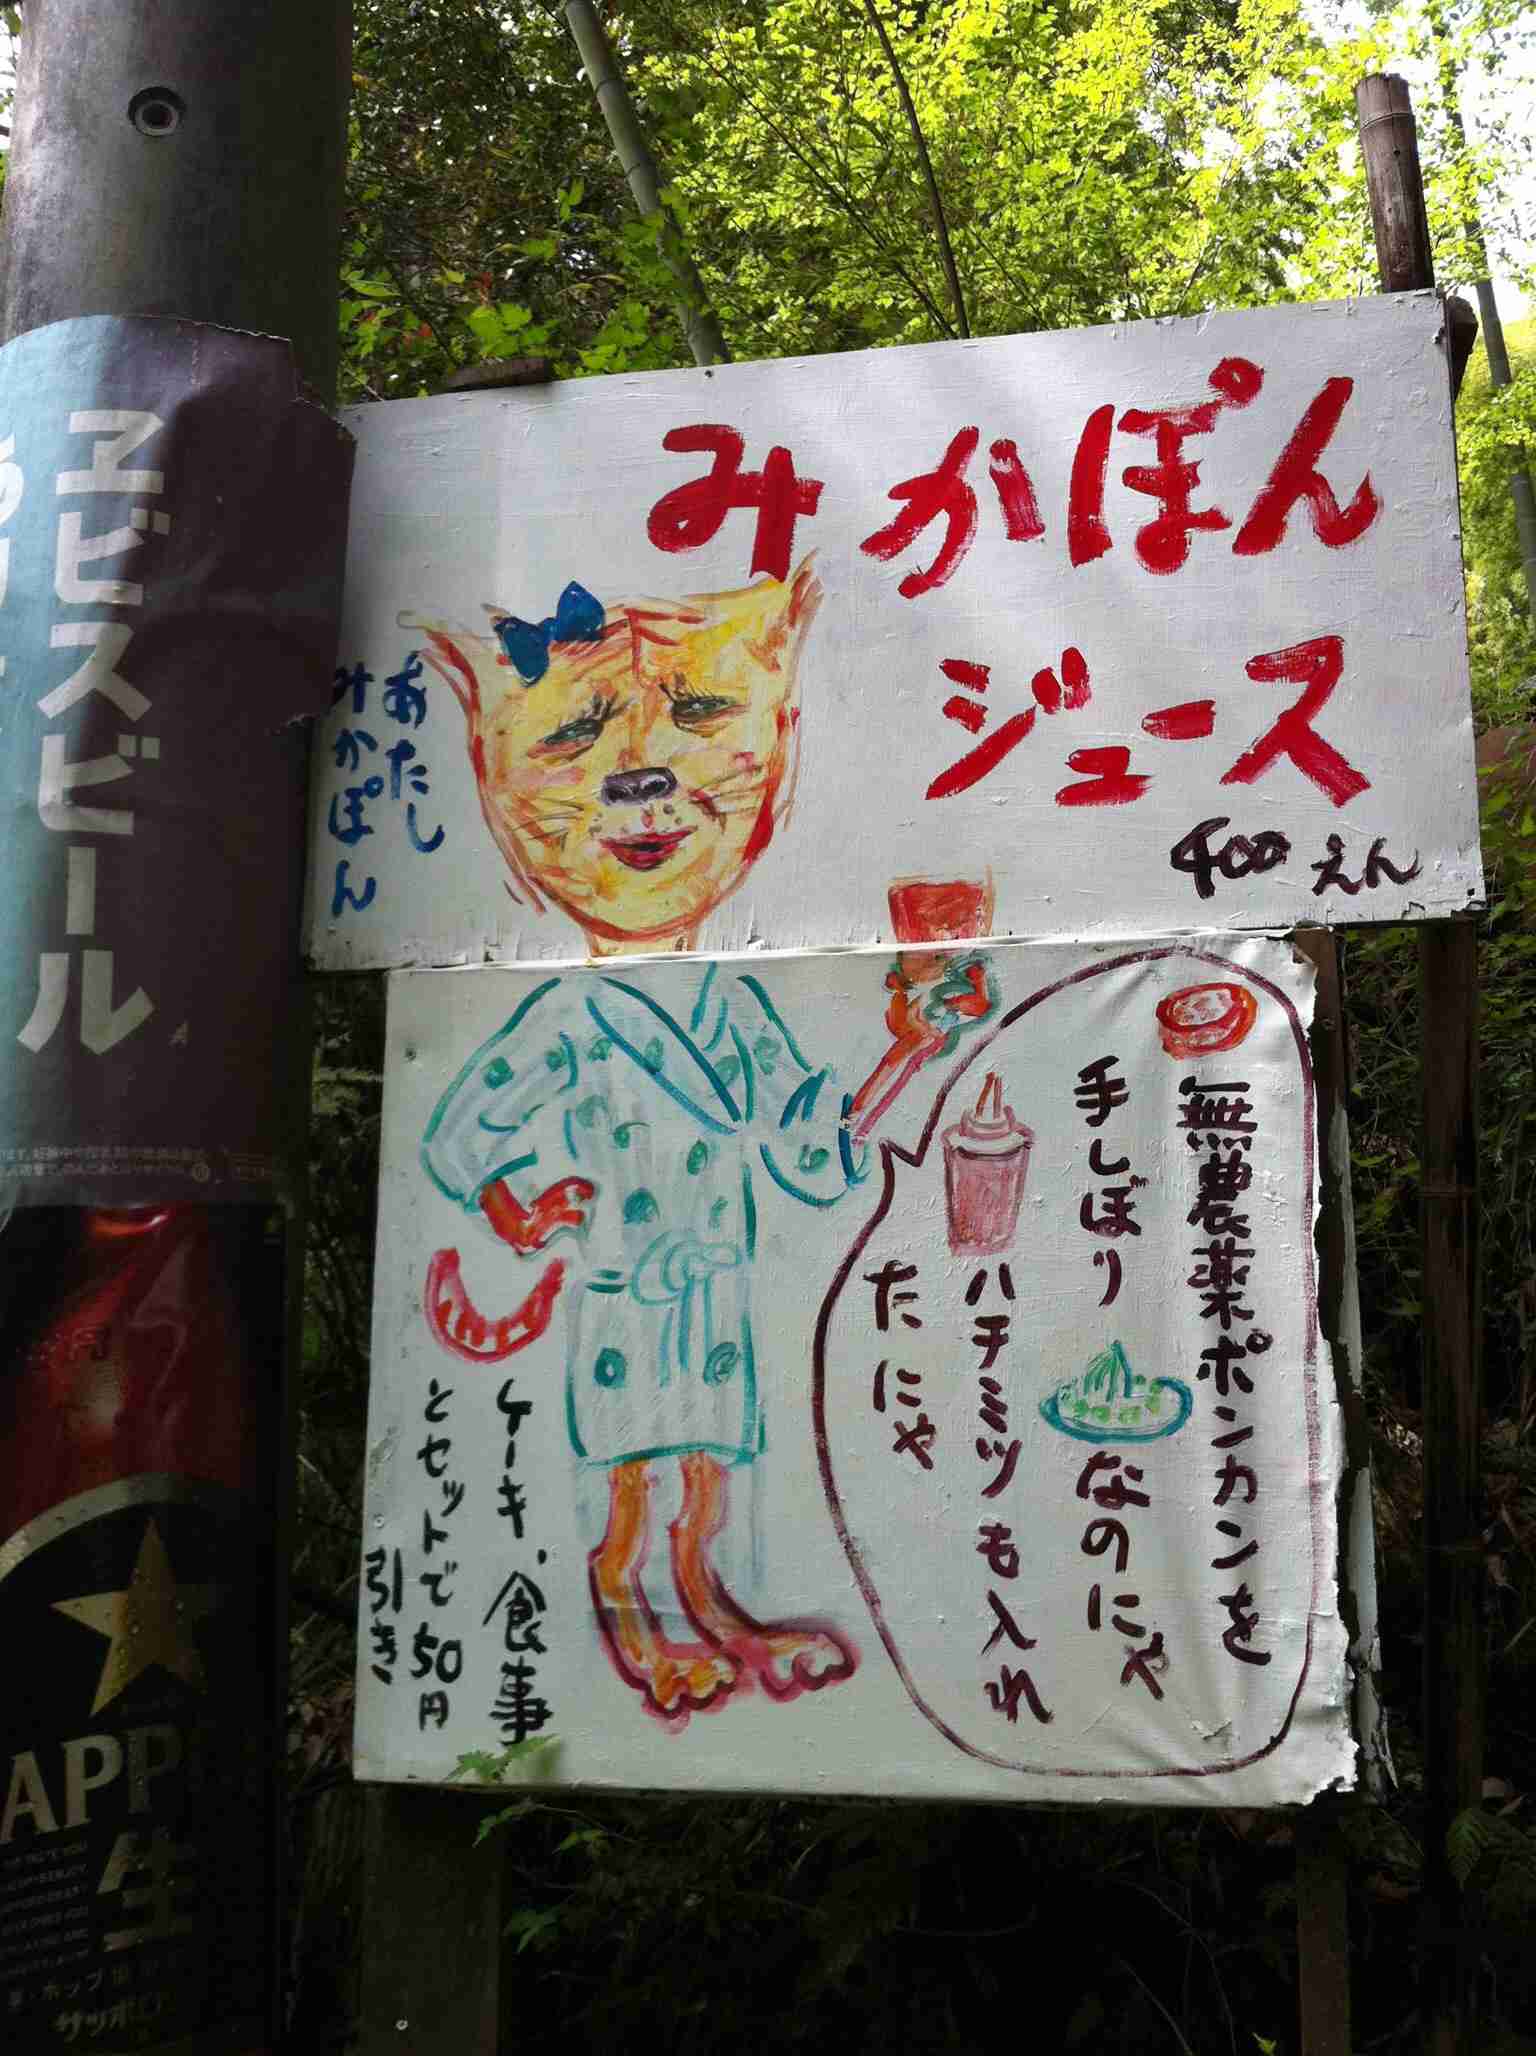 みかぽん
ジュース
400えん
あたし
みかぽん
無農薬ポンカンを
手しぼり
なのにゃ
ハチミツも入れ
たにゃ
ケーキ、食事
とセットで50円
引き
ヱビスビール
APP
生
サッポロ